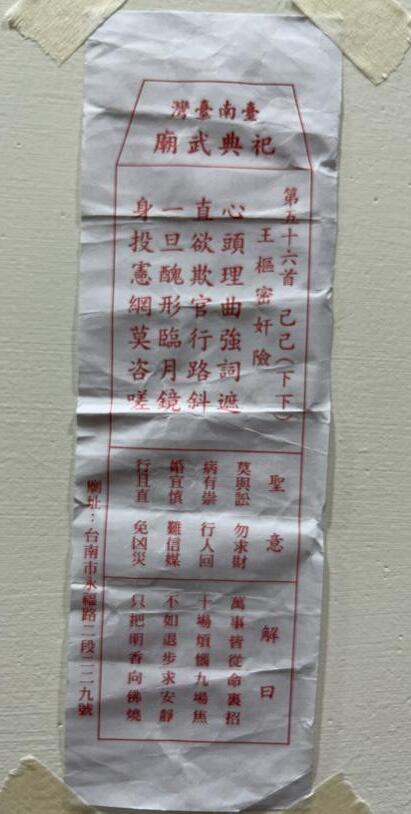 臺南臺灣
祀典武廟
第五十六首 己己(下下)
王樞密奸險
心頭理曲強詞遮
直欲欺官行路斜
一旦醜形臨月鏡
身投憲網莫咨嗟
聖意
莫與訟 勿求財
病有祟 行人回
婚宜慎 難信媒
行且直 免凶災
解曰
萬事皆從命裏招
十場煩惱九場焦
不如退步求安靜
只把明香向佛燒
廟址：台南市永福路二段二二九號